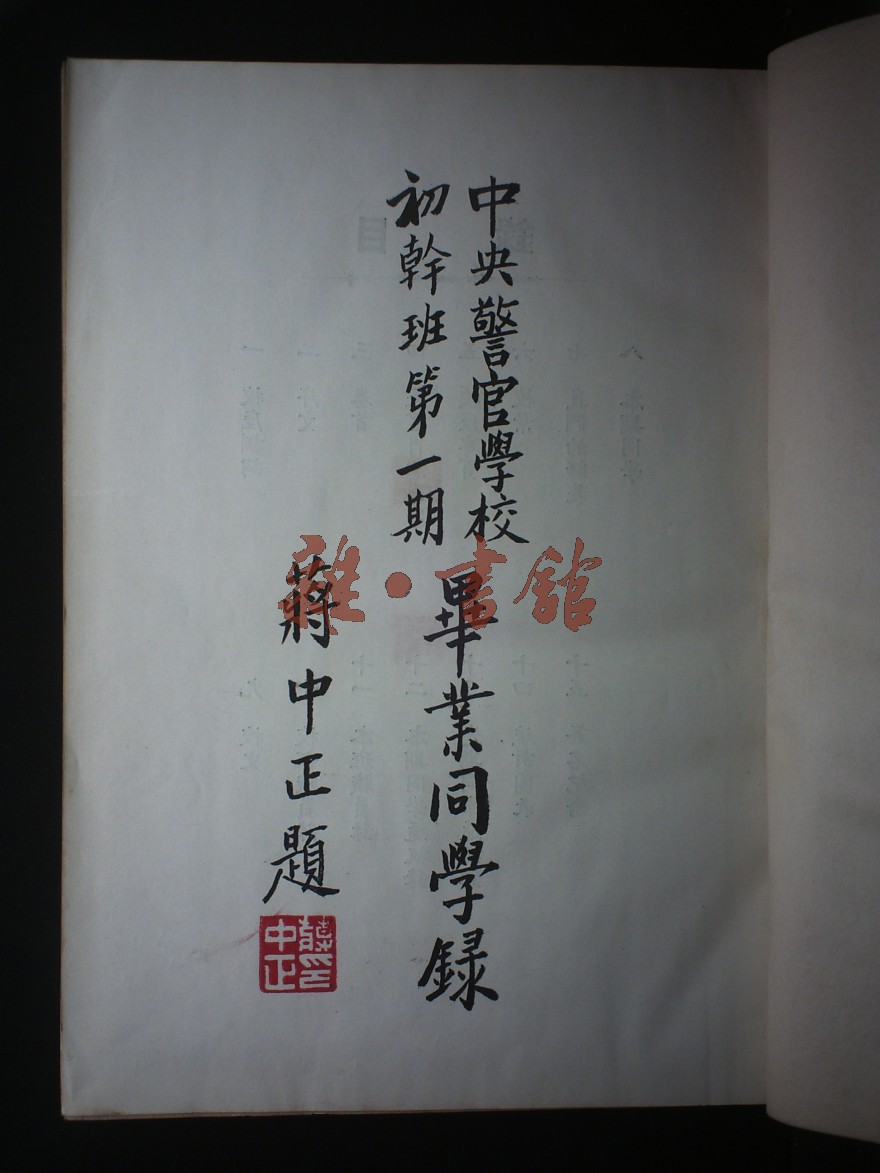 中央警官學校
初幹班第一期
畢業同學録
蔣中正題
蔣中正印
雜·書館